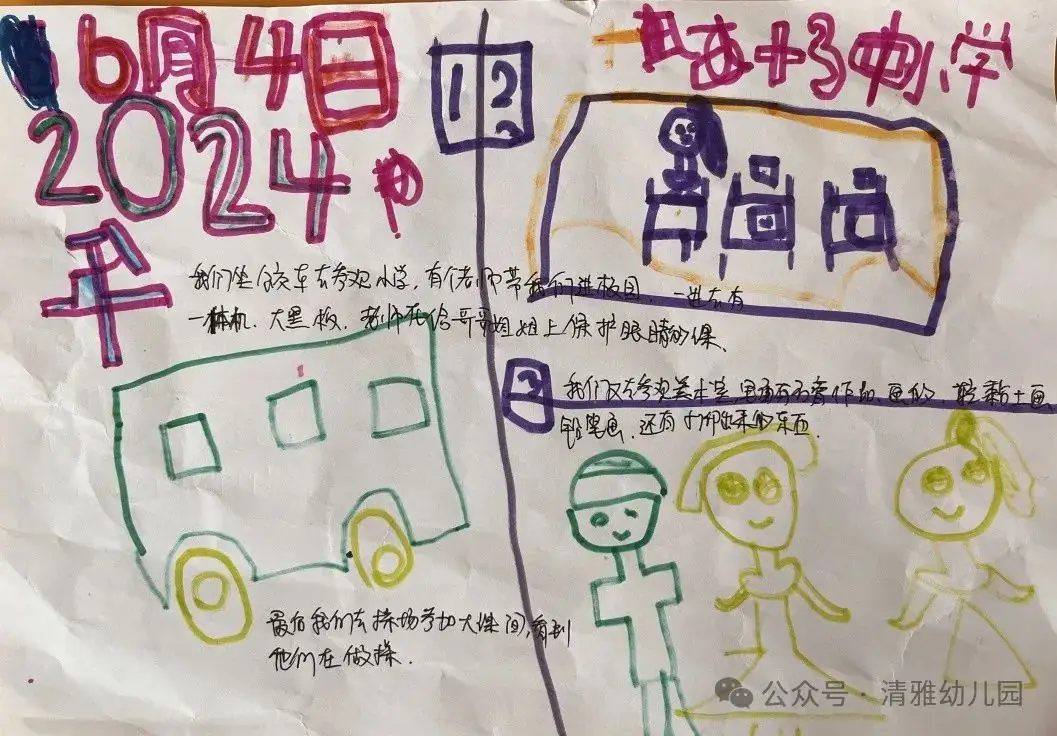 6月4日
2024
年
十3中小学
12
我们坐公交车去参观小学，有个老师带我们进校园，一进去有
一体机、大黑板，老师在给哥哥姐姐上保护眼睛的课、
2
我们又去参观美术室里面有不同作品、画的、粘土画、
铅笔画，还有打印出来的东西.
最后我们去操场参加大课间，看到
他们在做操.
公众号 · 清雅幼儿园